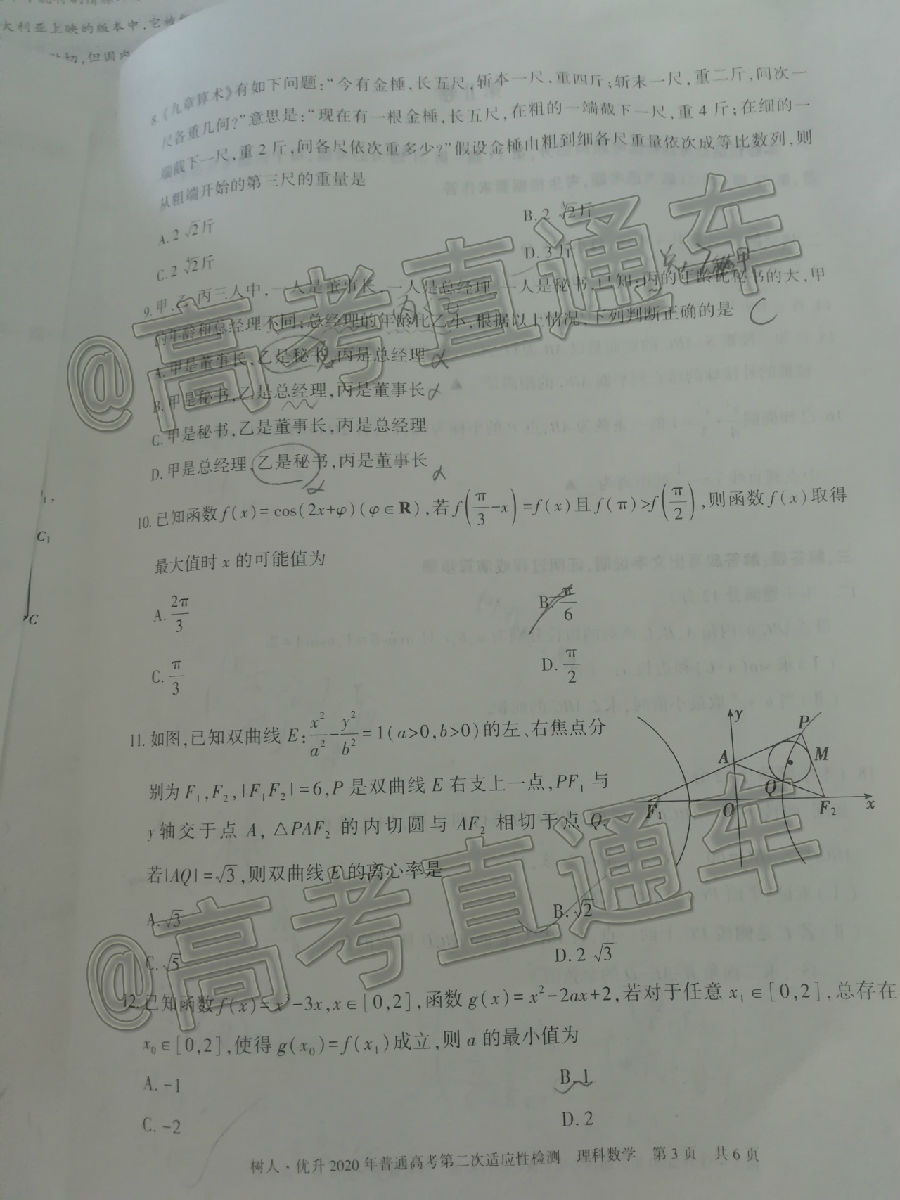 大利亚上映的版本中,它被
8.《九章算术》有如下问题:“今有金棰,长五尺,斩本一尺,重四斤;斩末一尺,重二斤,问次一
尺各重几何?”意思是:“现在有一根金棰,长五尺,在粗的一端截下一尺,重 4 斤;在细的一
端截下一尺,重 2 斤,问各尺依次重多少?”假设金棰由粗到细各尺重量依次成等比数列,则
从粗端开始的第三尺的重量是
A. 2√2斤
D. 3斤
9. 甲、乙、丙三人中,一人是董事长,一人是总经理,一人是秘书,已知:丙的年龄比秘书的大,甲
的年龄和总经理不同;总经理的年龄比乙小,根据以上情况,下列判断正确的是 C
A. 甲是董事长,乙是秘书,丙是总经理
B. 甲是秘书,乙是总经理,丙是董事长
C. 甲是秘书,乙是董事长,丙是总经理
D. 甲是总经理,乙是秘书,丙是董事长
C₁
C
10. 已知函数 f(x)=cos(2x+φ)(φ∈R),若f(π/3-x)=f(x)且f(π)>f(π/2),则函数f(x)取得
最大值时 x 的可能值为
A. 2π/3
B. π/6
C. π/3
D. π/2
11. 如图,已知双曲线 E: x²/a²-y²/b²=1(a>0,b>0)的左、右焦点分
别为F₁,F₂,|F₁F₂|=6,P 是双曲线 E 右支上一点,PF₁ 与
y轴交于点 A,△PAF₂ 的内切圆与 AF₂ 相切于点 Q,
若|AQ|=√3,则双曲线 E 的离心率是
y
P
A
M
Q
F₁
O
F₂
x
A. √3
B. √2
C. √5
D. 2√3
12. 已知函数f(x)=x³-3x,x∈[0,2],函数 g(x)=x²-2ax+2,若对于任意 x₁∈[0,2],总存在
x₀∈[0,2],使得 g(x₀)=f(x₁)成立,则 a 的最小值为
A. -1
B. 1
C. -2
D. 2
树人·优升2020年普通高考第二次适应性检测 理科数学 第3页 共6页
@高考直通车
@高考直通车